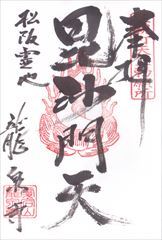 奉拝
毘沙門天
松阪霊地
龍泉寺